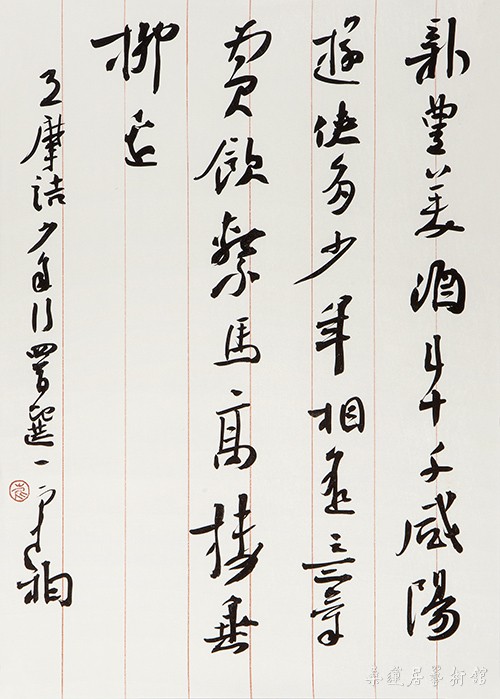 新豐美酒斗十千咸陽
遊俠多少年相逢意氣
為君飲繫馬高樓垂
柳邊
王摩詰少年行四首選一
桑蓮居藝術館